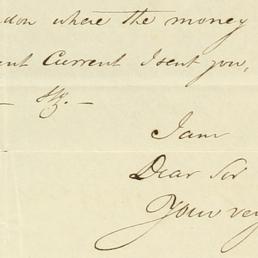 don where the money
ent Current I sent you,
I am
Dear Sir
Your ve